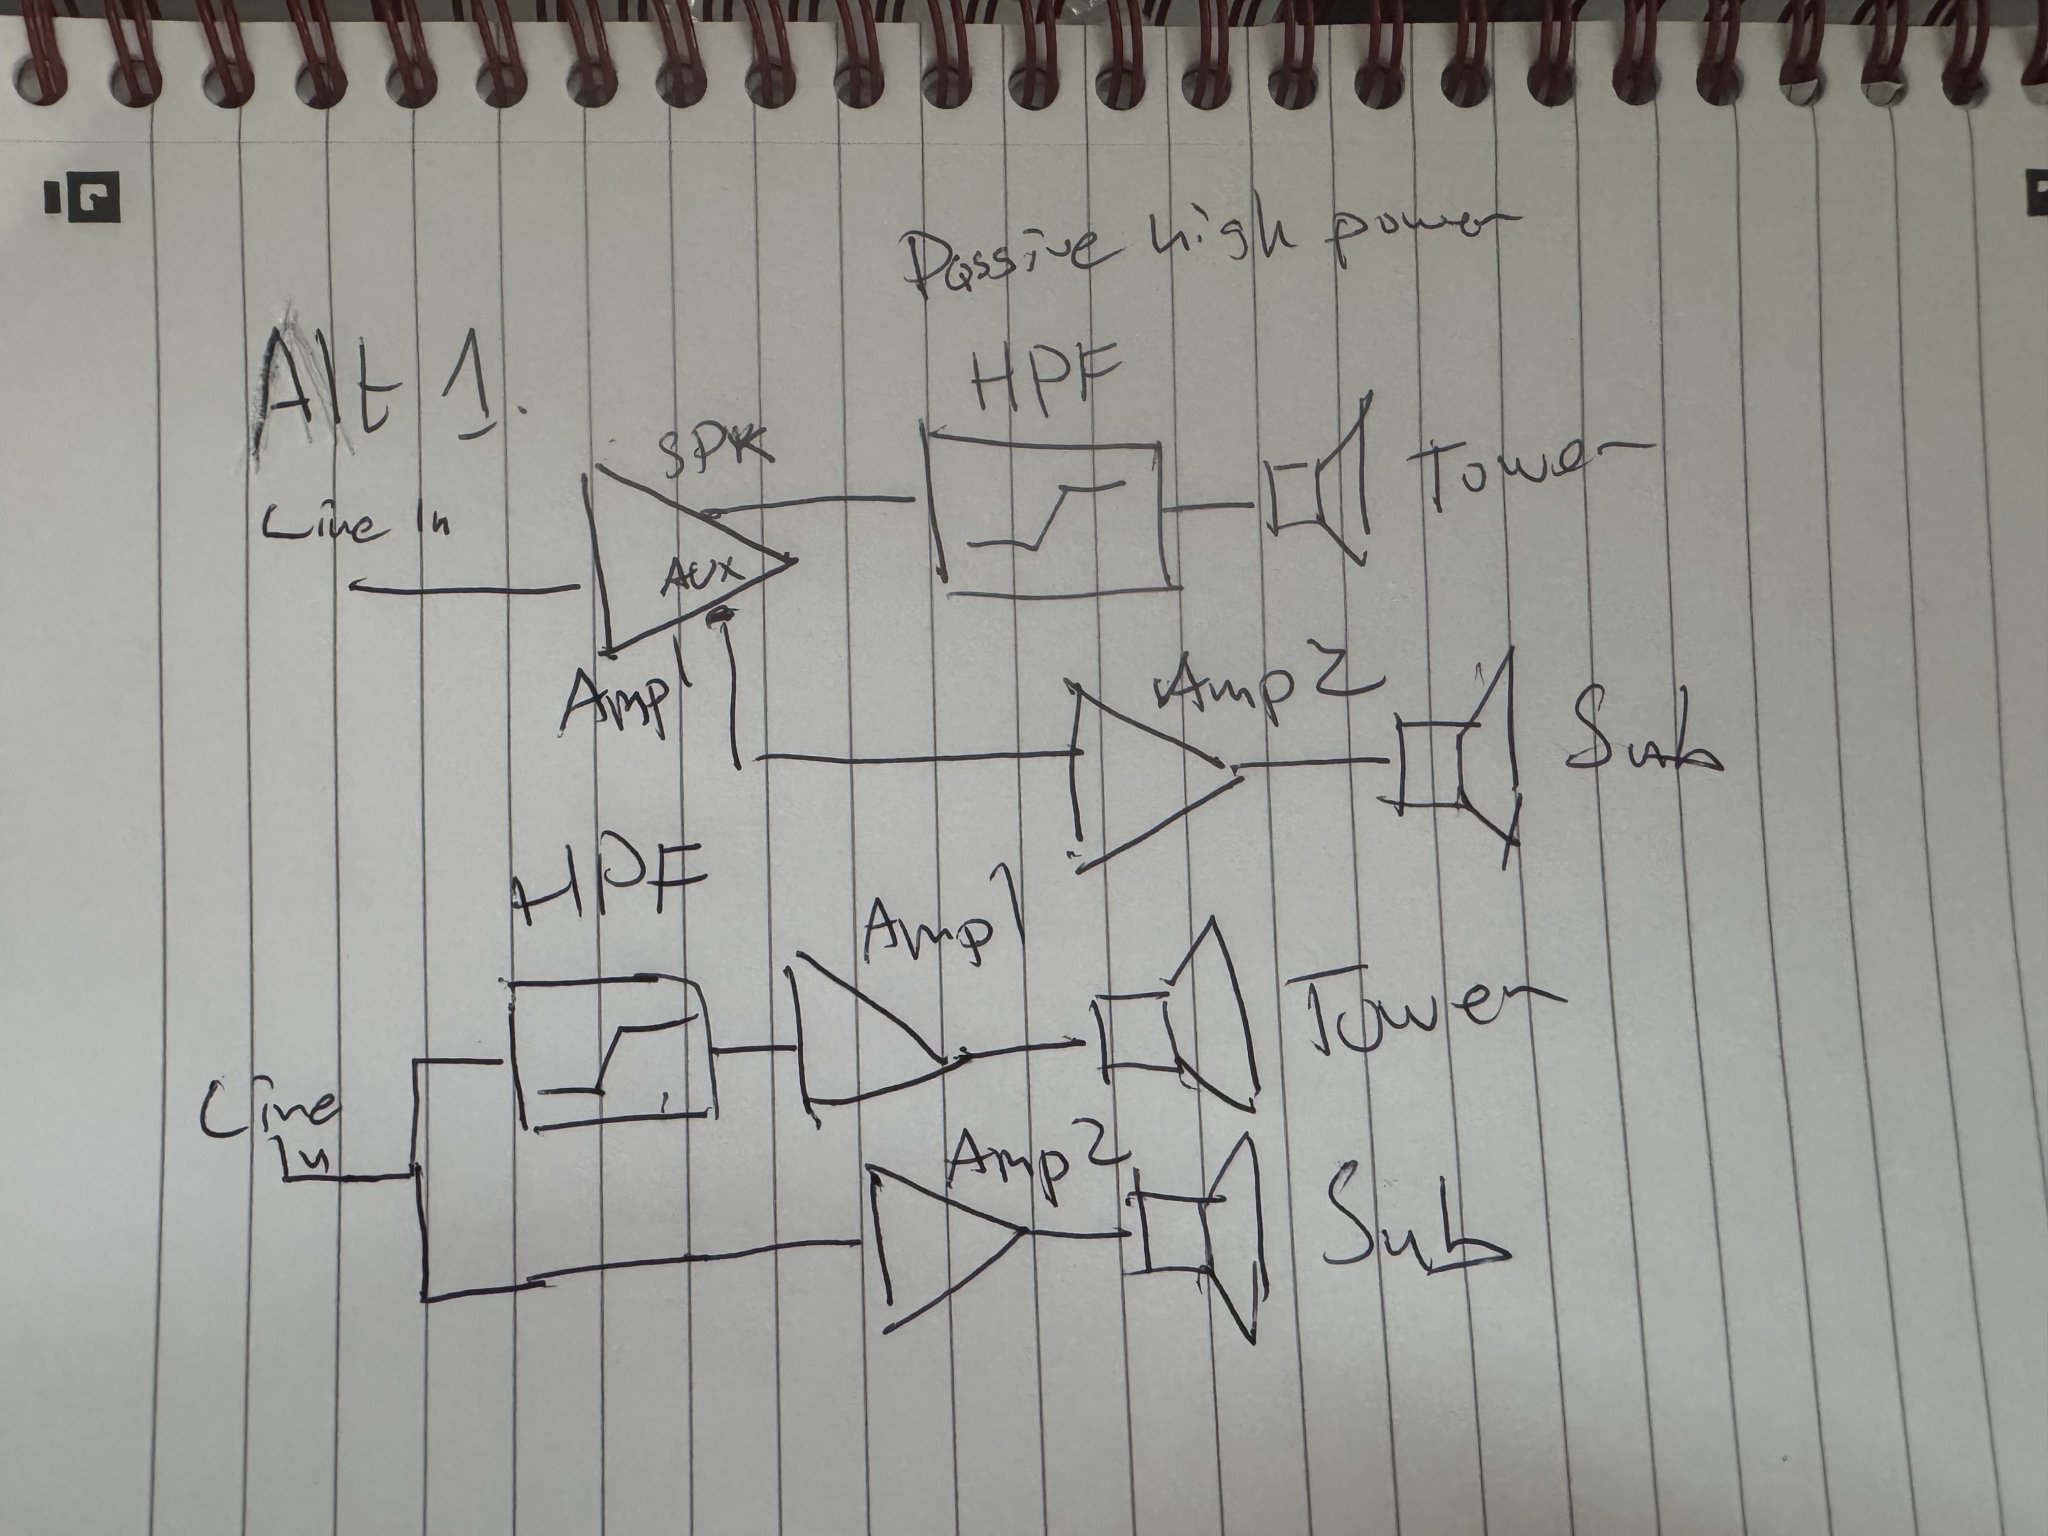 Passive high power
HPF
Alt 1.
SPK
Tower
Line In
AUX
Amp 1
Amp 2
Sub
HPF
Amp 1
Tower
Line
In
Amp 2
Sub